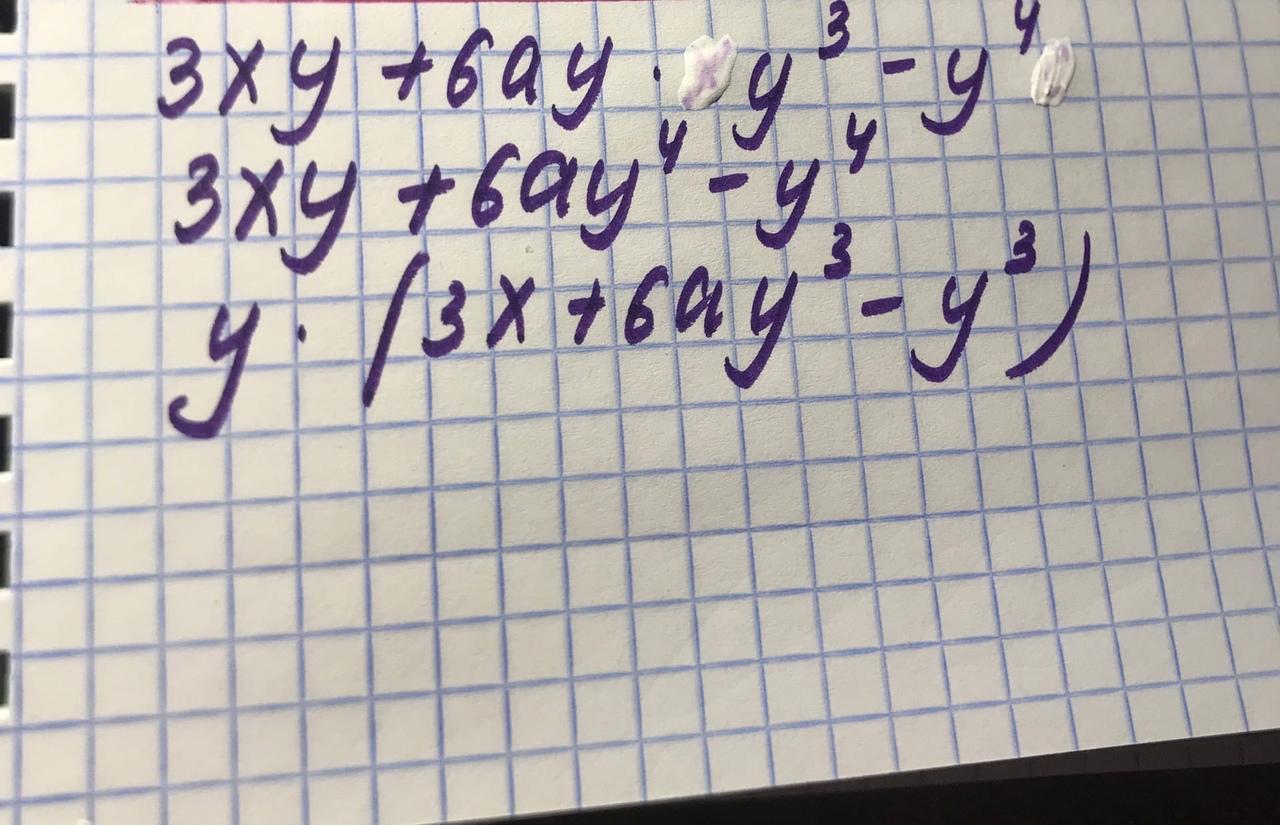 3xy + 6ay · y³ - y⁴
3xy + 6ay⁴ - y⁴
y · (3x + 6ay³ - y³)